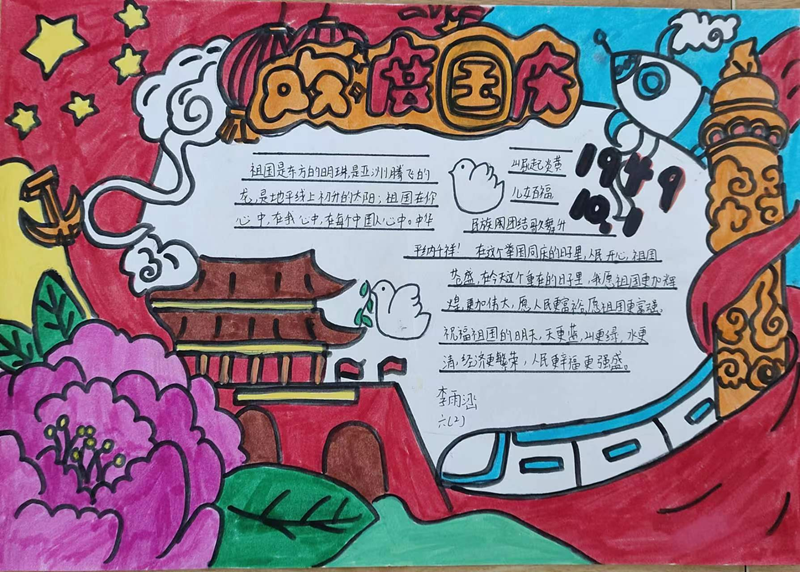 欢度国庆
祖国是东方的明珠,是亚洲腾飞的
龙,是地平线上初升的太阳;祖国在你
心中,在我心中,在每个中国人心中。中华
山脉起炎黄
儿女百福
民族团团结歌舞升
1949
10.1
在这个举国同庆的日子里,人民开心,祖国
昌盛,在今天这个重在的日子里,我愿祖国更加辉
煌,更加伟大,愿人民更富裕,愿祖国更富强。
祝福祖国的明天,天更蓝,山更绿,水更
清,经济更繁荣,人民更幸福更强盛。
李雨涵
六(2)